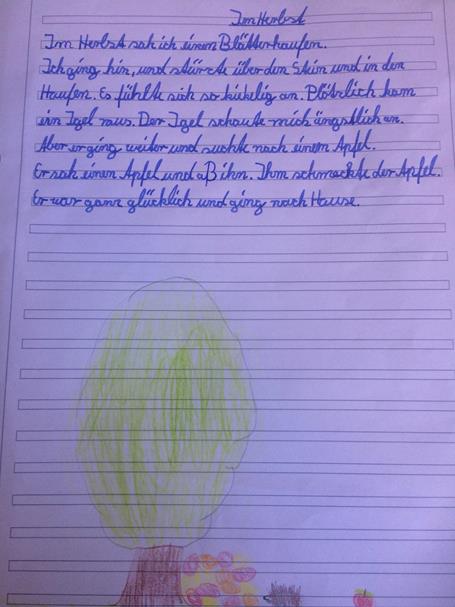 Im Herbst
Im Herbst sah ich einen Blätterhaufen.
Ich ging hin, und stürzte über den Stein und in den
Haufen. Es fühlte sich so kickelig an. Plötzlich kam
ein Igel raus. Der Igel schaute mich ängstlich an.
Aber er ging weiter und suchte nach einem Apfel.
Er sah einen Apfel und aß ihn. Ihm schmeckte der Apfel.
Er war ganz glücklich und ging nach Hause.